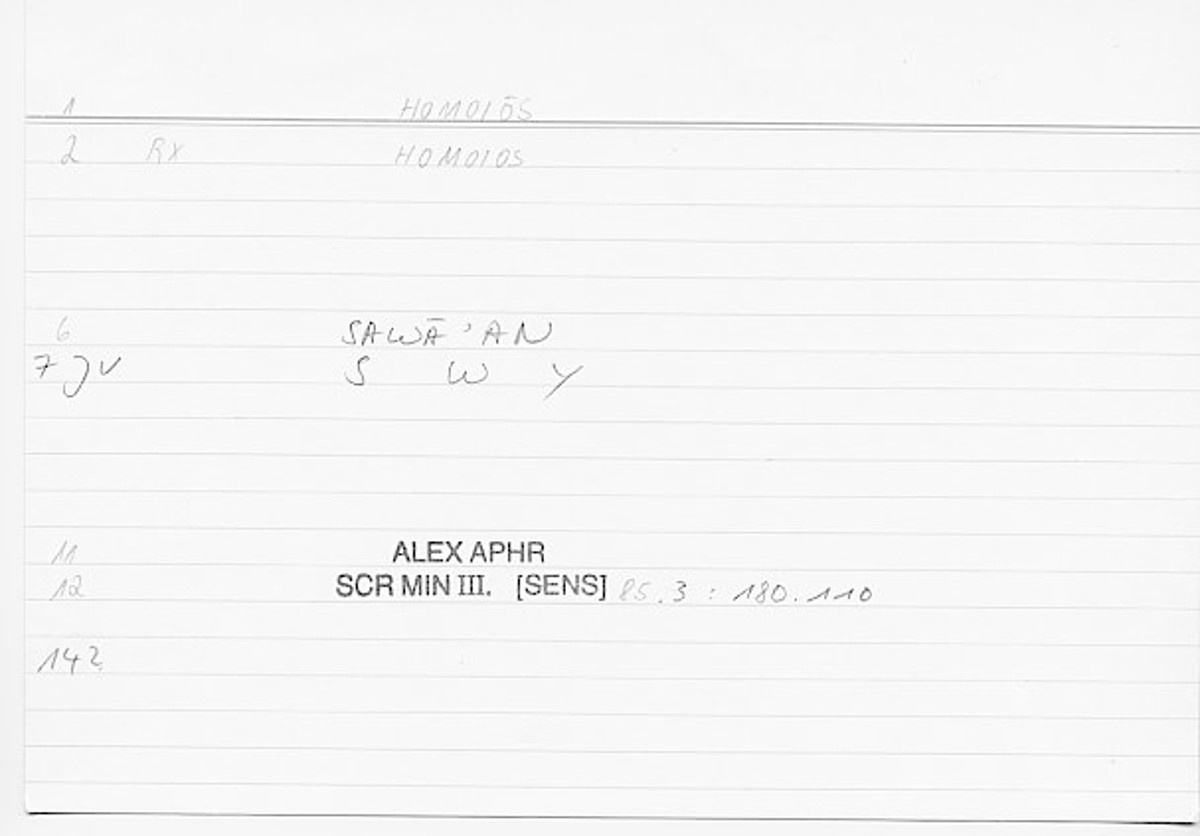 1 HOMOIŌS
2 RX HOMOIOS
6 SAWĀ'AN
7 JV S W Y
11 ALEX APHR
12 SCR MIN III. [SENS] 85.3 : 180.110
142